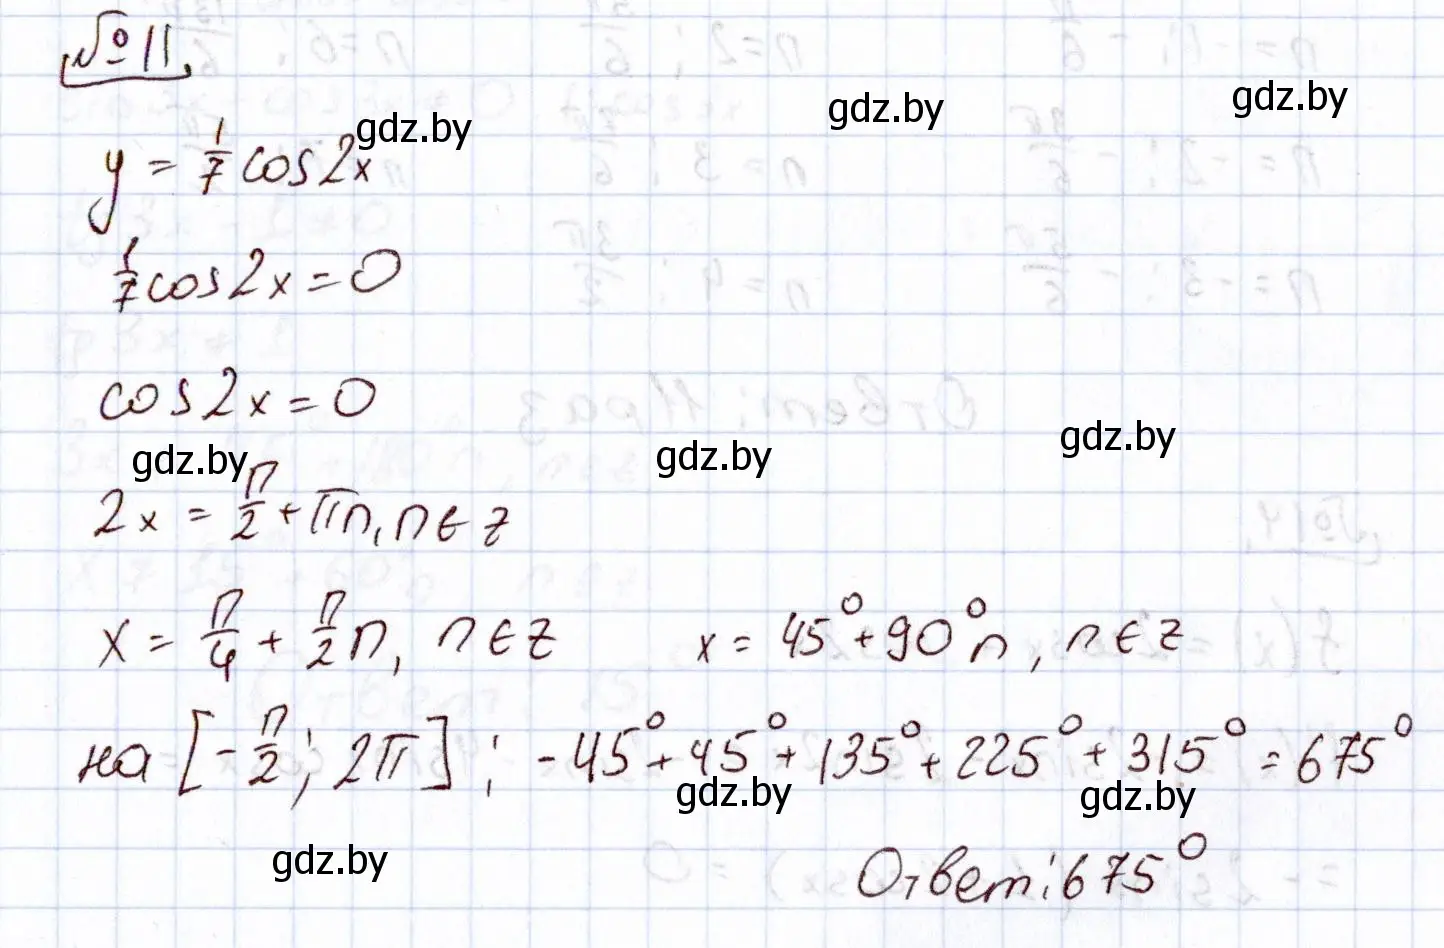 №11
gdz.by
gdz.by
gdz.by
y = 1/7 cos2x
1/7 cos2x = 0
cos2x = 0
gdz.by
gdz.by
gdz.by
2x = π/2 + πn, n ∈ z
x = π/4 + π/2 n, n ∈ z x = 45° + 90° n, n ∈ z
на [-π/2; 2π]; -45° + 45° + 135° + 225° + 315° = 675°
gdz.by
gdz.by
gdz.by
Ответ: 675°